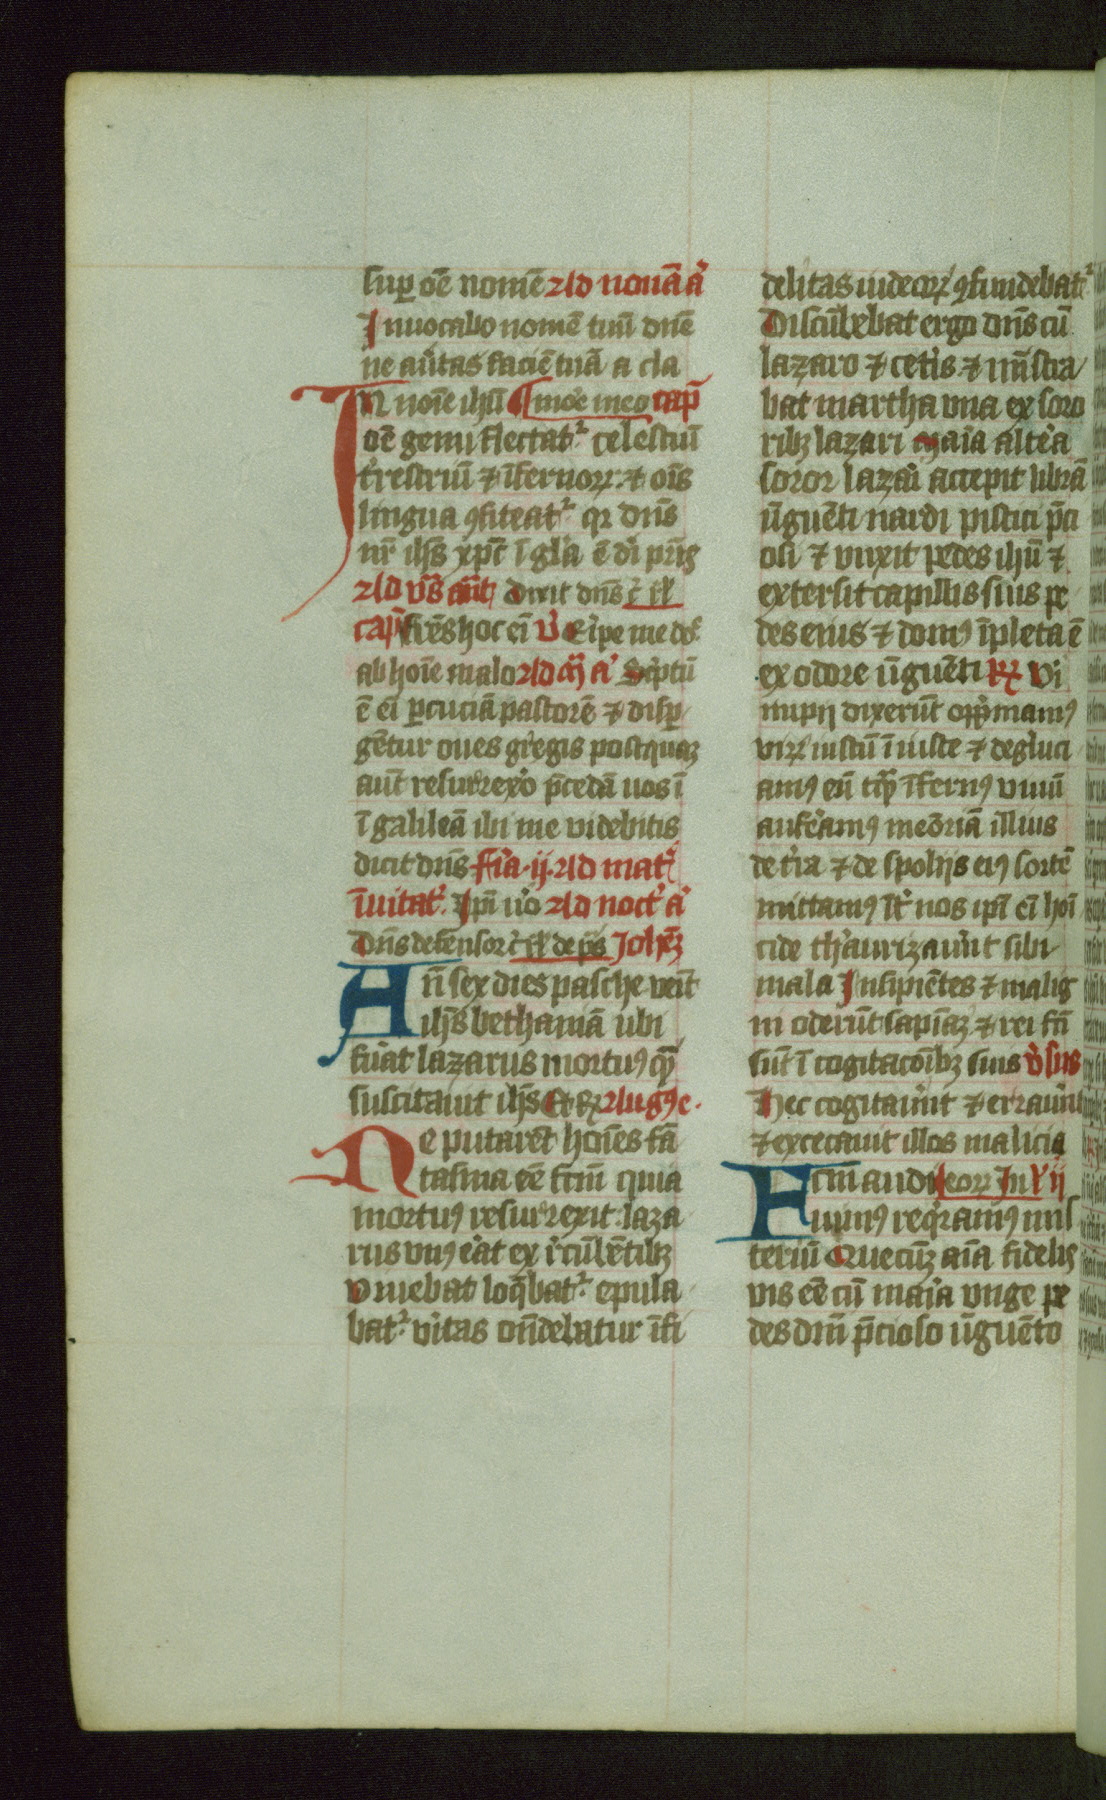 sup oē nomē Ad nonā a͛
Inuocabo nomē tuū dn̄e
ne au͛tas faciē tuā a cla
In noīe ihū more meo cap̄
oē genu flectat͛ celestiū
t͛restriū ⁊ īfernoꝝ ⁊ oīs
lingua ꝯfiteat͛ qꝛ dn̄s
nr̄ ihs̄ xp̄c ī gl̄a ē dī pr̄is
Ad vs̄ an̄t Dixit dn̄s
cap̄ Fr̄es hoc eī V̄ Eripe me d͛
ab hoīe malo Ad m̄ a͛ Scͥptū
ē eī ꝑcuciā pastorē ⁊ disꝑ
gētur oues gͥegis postquaꝫ
aūt resurrexo p̄cedā uos ī
ī galileā ibi me videbitis
dicit dn̄s Fīa ij Ad mat͛
īuitat͛ Ip̄i u͛o Ad noct͛ a͛
Dn̄s defensor de p̄s Joh̄eꝫ
An̄ sex dies pasche veīt
ihs̄ bethaniā ubi
fu͛at lazarus mortuꝰ qm̄
suscitauit ihs̄ Et R Augꝰ e.
Ne putarēt hoīes fā
tasma eē fcm̄ quia
mortuꝰ resurrexit laza
rus vnꝰ e͛at ex r͛cūbētibꝫ
Viuebat loq̄bat͛ epula
bat͛ v͛itas on̄debatur īfi
delitas iudeoꝝ ꝯfundebat͛
Discūbebat ergo dn̄s cū
lazaro ⁊ cet͛is ⁊ mīstra
bat martha vna ex soro
ribꝫ lazari Maīa alte͛a
soror lazaī accepit librā
ūguēti nardi pistici p̄ci
osi ⁊ vnxit pedes ihū ⁊
extersit capillis suis pe
des eius ⁊ domꝰ īpleta ē
ex odore ūguēti R Vi
ri īpij dixerūt opp̄mamꝰ
viꝝ iustū īiuste ⁊ degluci
amꝰ eū tq̄ īfernꝰ viuū
aufe͛amꝰ meōriā illius
de t͛ra ⁊ de spolijs eiꝰ sortē
mittamꝰ īt͛ nos ip̄i eī hoī
cide th͛aurizau͛unt sibi
mala Insipiētes ⁊ malig
ni oderūt sapīaꝫ ⁊ rei fc̄i
sūt ī cogitacōībꝫ suis V͛sus
Hec cogitau͛unt ⁊ errau͛unt
⁊ excecauit illos malicia
Ecm̄ audi
uimꝰ req͛ramꝰ mis
teriū Quecūꝫ aīa fidelis
vis eē cū maīa vnge pe
des dn̄i p̄cioso ūguēto